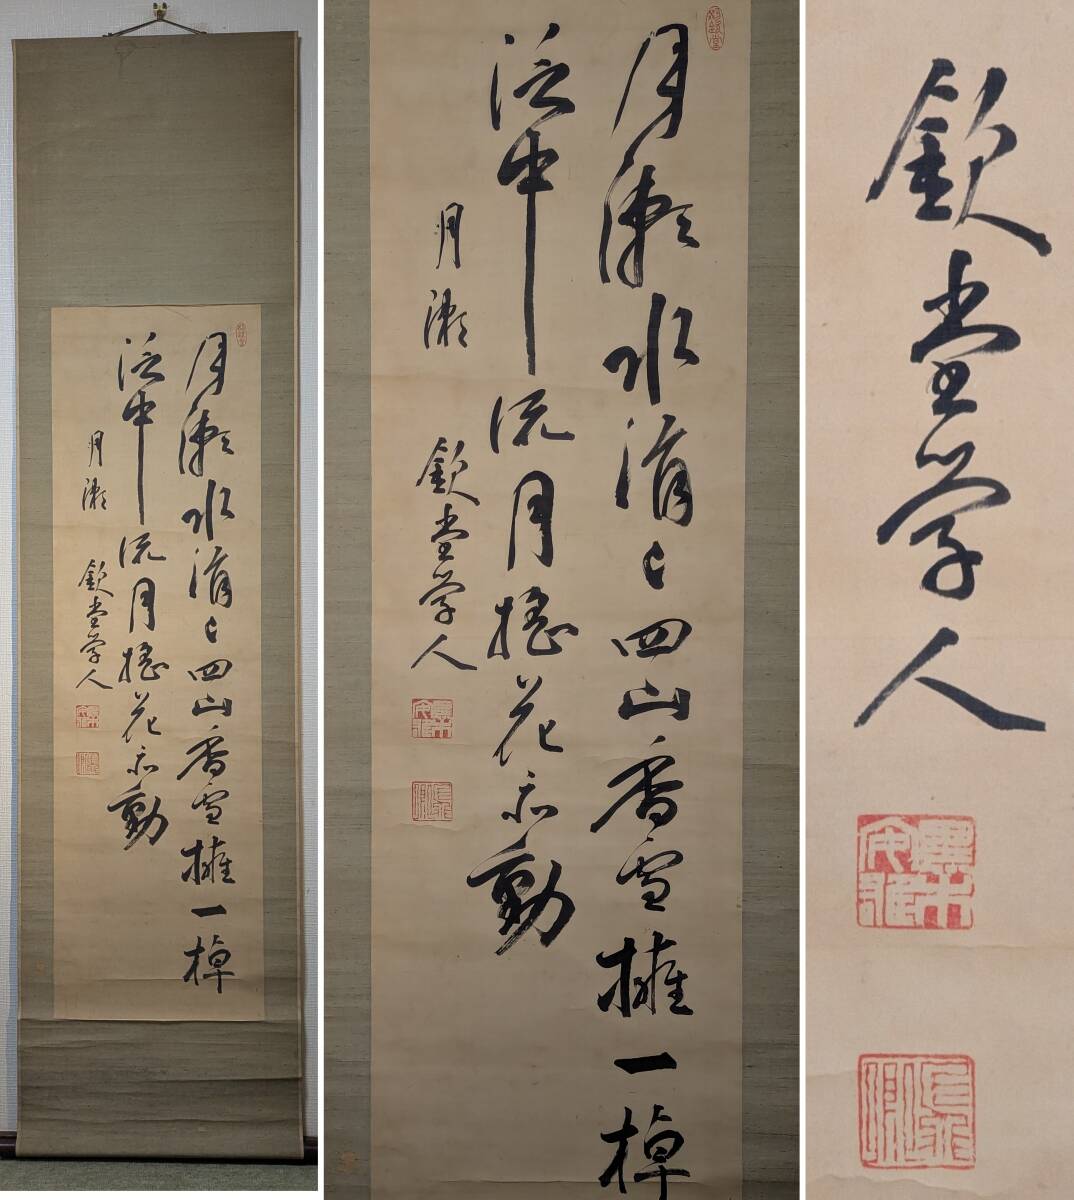 月瀬水涓々四山香雪擁一棹
泛中流月揺花亦動
月瀬
欽堂学人
月瀬水涓々四山香雪擁一棹
泛中流月揺花亦動
月瀬
欽堂学人
欽堂学人